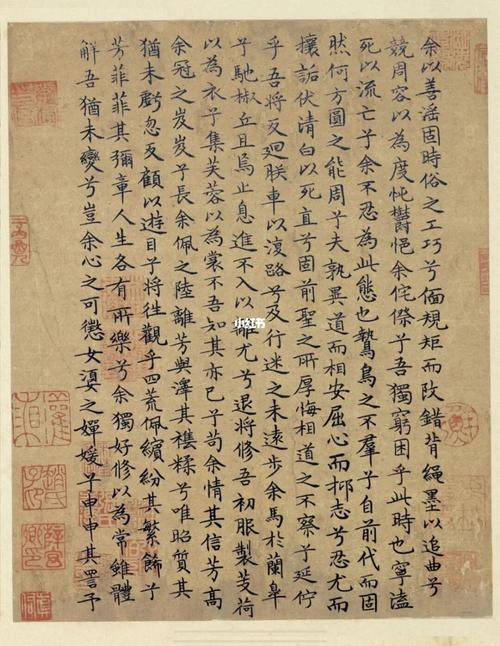 余以善淫固時俗之工巧兮偭規矩而改錯背繩墨以追曲兮
競周容以為度忳鬱悒余侘傺兮吾獨窮困乎此時也寧溘
死以流亡兮余不忍為此態也鷙鳥之不羣兮自前代而固
然何方圓之能周兮夫孰異道而相安屈心而抑志兮忍尤而
攘詬伏清白以死直兮固前聖之所厚悔相道之不察兮延佇
乎吾將反廻朕車以復路兮及行迷之未遠步余馬於蘭皋
兮馳椒丘且焉止息進不入以離尤兮退將修吾初服製芰荷
以為衣兮集芙蓉以為裳不吾知其亦已兮苟余情其信芳高
余冠之岌岌兮長余佩之陸離芳與澤其雜糅兮唯昭質其
猶未虧忽反顧以遊目兮將往觀乎四荒佩繽紛其繁飾兮
芳菲菲其彌章人生各有所樂兮余獨好修以為常雖體
解吾猶未變兮豈余心之可懲女嬃之嬋媛兮申申其詈予
小红书